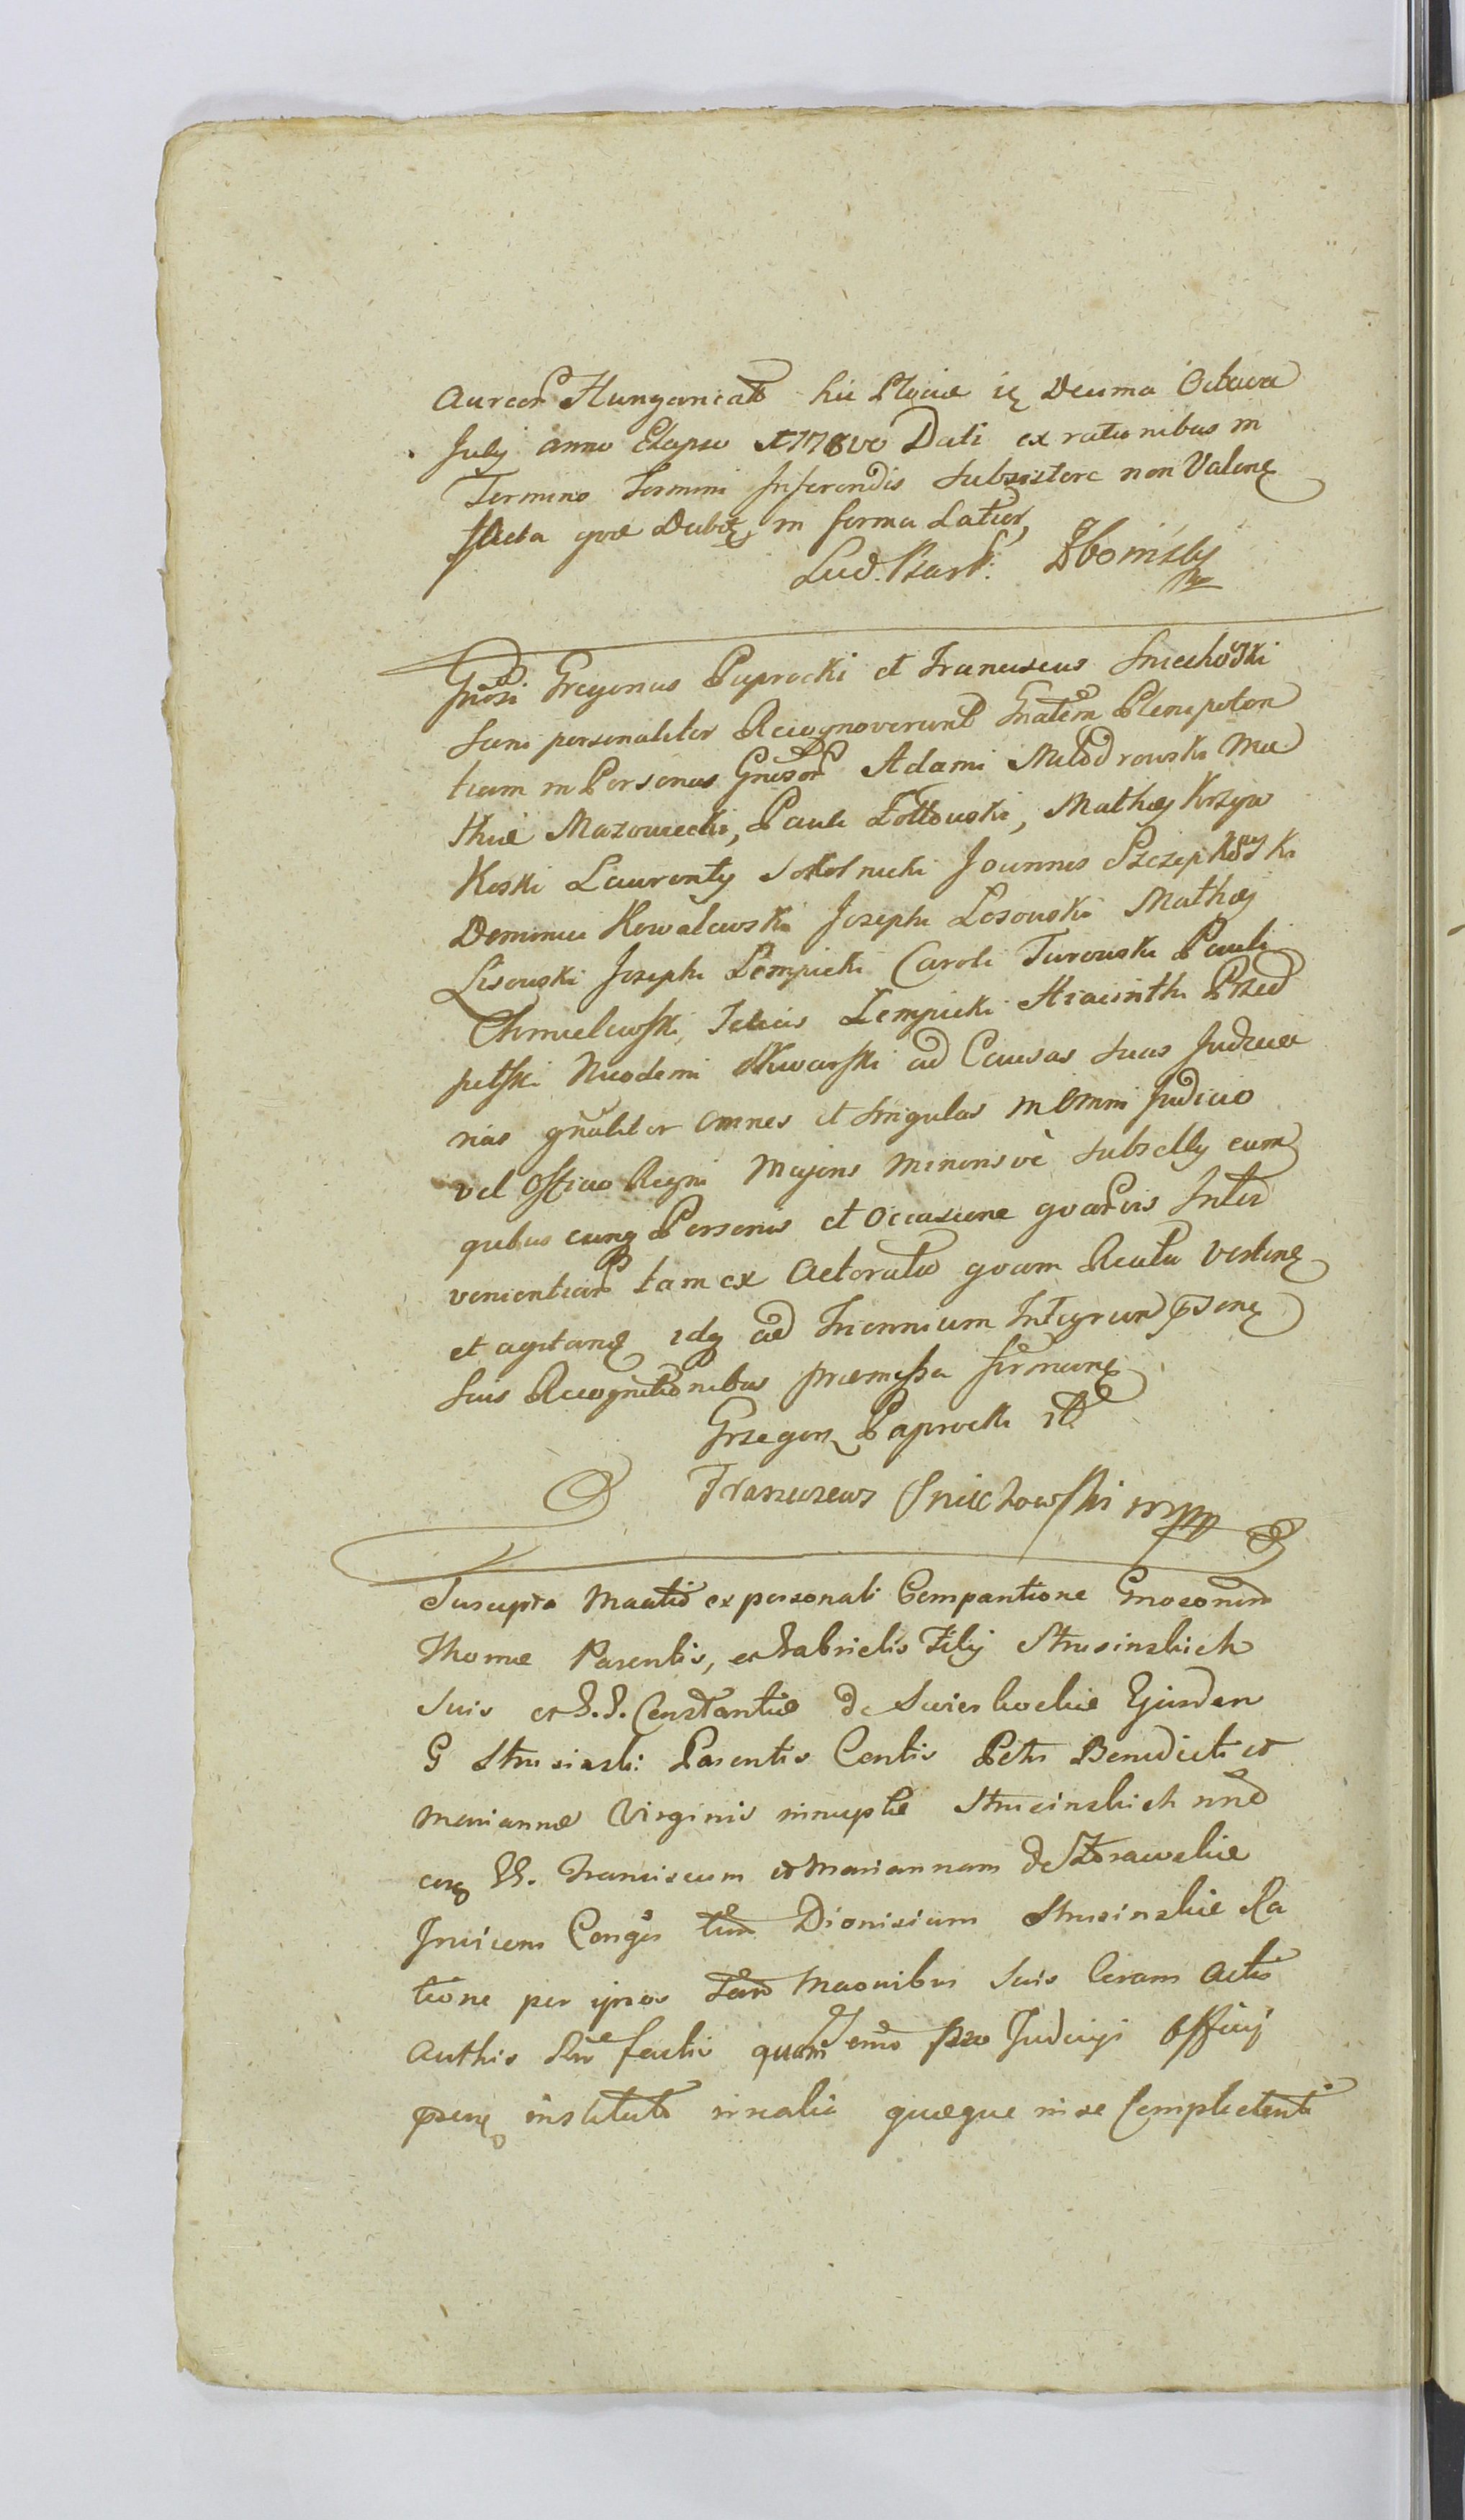 Aureor Hungarical hic Plociae ię Decima Octava
July anno Elapso 1778vo Dati ex rationibus in
Termino Termini Inferendis Subsistere non Valenę
Acta que Dubitę in forma Latiori
Lud. Bsarf.
Gnosi Gregorius Paprocki et Franciscus Sniechowski
Sani personaliter Recognoverunt Gnalem Plenipoten
tiam in Personas Gnosor Adami Mlodrowski Ma
thiae Mazowiecki, Pauli Żołtowski, Mathej Krzyw
koski Laurenty Sokolnicki Joannis Szczepkowski
Dominici Kowalewski Josephi Losowski Mathej
Lisowski Josephi Lempicki Caroli Turowski Pauli
Chmielewski, Felicis Lempicki Hiacinthi Przed
petski Nicodemi Skwarski ad Causas Suas Judicia
rias gnaliter omnes et Singulas in Omni Judicio
vel Officio Regni Majoris Minorisvè Subselly cum
quibus cunq Personis et Occasione quarvis Inter
venientiar tam ex Actoratu quam Reatu Vertenę
et agitanę idq ad Triennium Integrum psenę
Suis Recognitionibus praemissa firmanę
Grzegorz Paprocki
Franciszeus Sniechowski mpp
Suscepta Maatio ex personali Comparitione Gnosorum
Thomae Parentis, et Gabrielis Filij Strusinskich
Suis et G.G. Constantiae de Swierkockie Ejusdem
G Strusinski Parentis Contis Petri Benedicti et
Mariannae Virginis innuptae Strusinskich nne
cirq GG. Franciscum et Mariannam de Zorawskie
Invicem Conges tum Dionisium Strusinskie Ra
tione per ipsos tum Maonibus Suis Coram Actis
Authis Rne factis quam Judicij Officij
psenę institut in realia quaeque in se Complectent